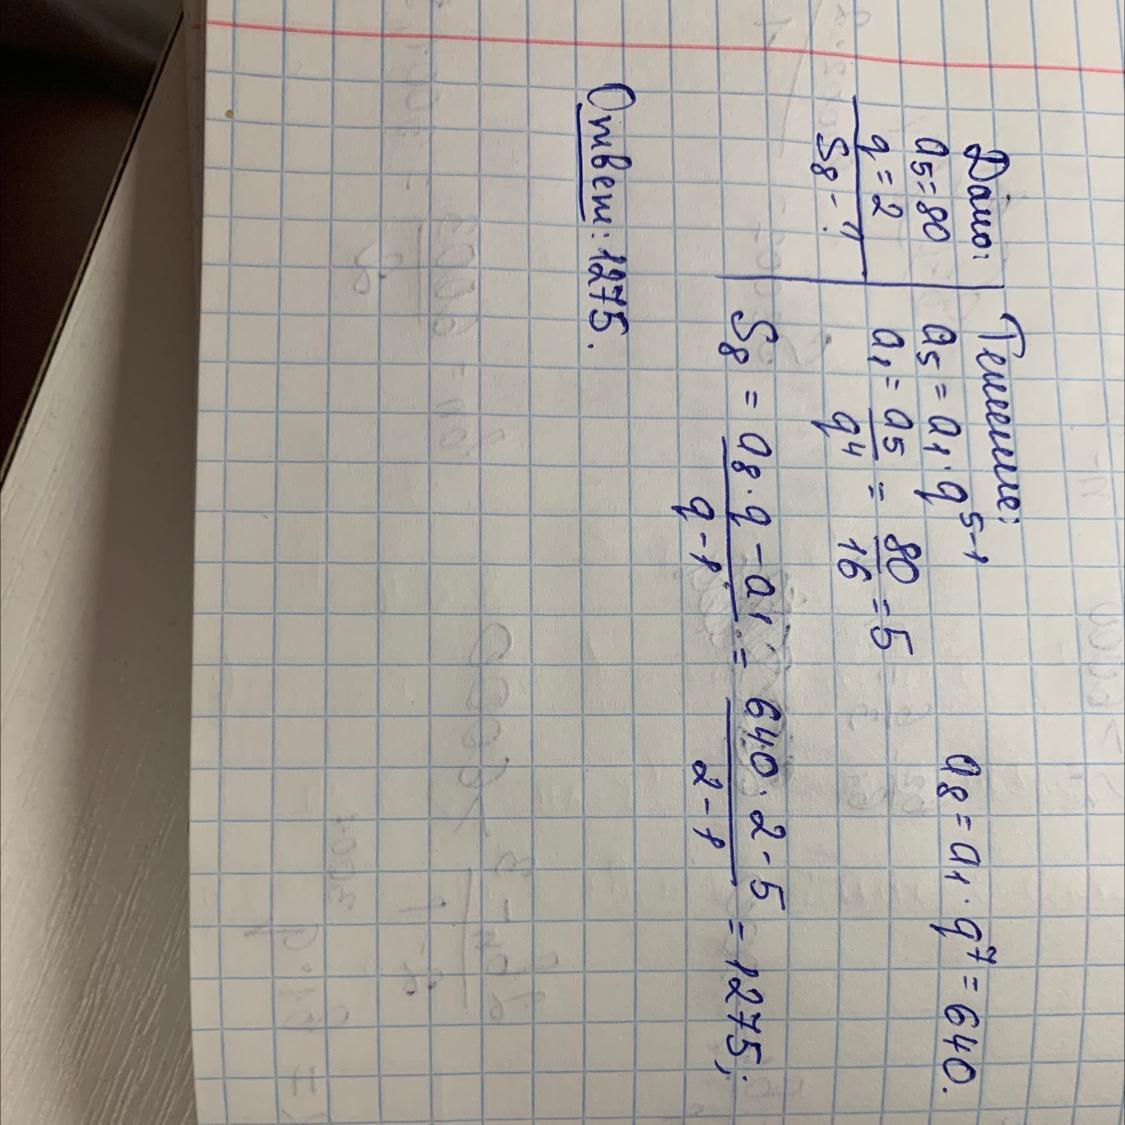 Дано:
a5=80
q=2
S8-?
Решение:
a5=a1·q^5-1
a1=a5/q4=80/16=5
a8=a1·q^7=640.
S8=a8·q-a1/q-1=640·2-5/2-1=1275;
Ответ: 1275.